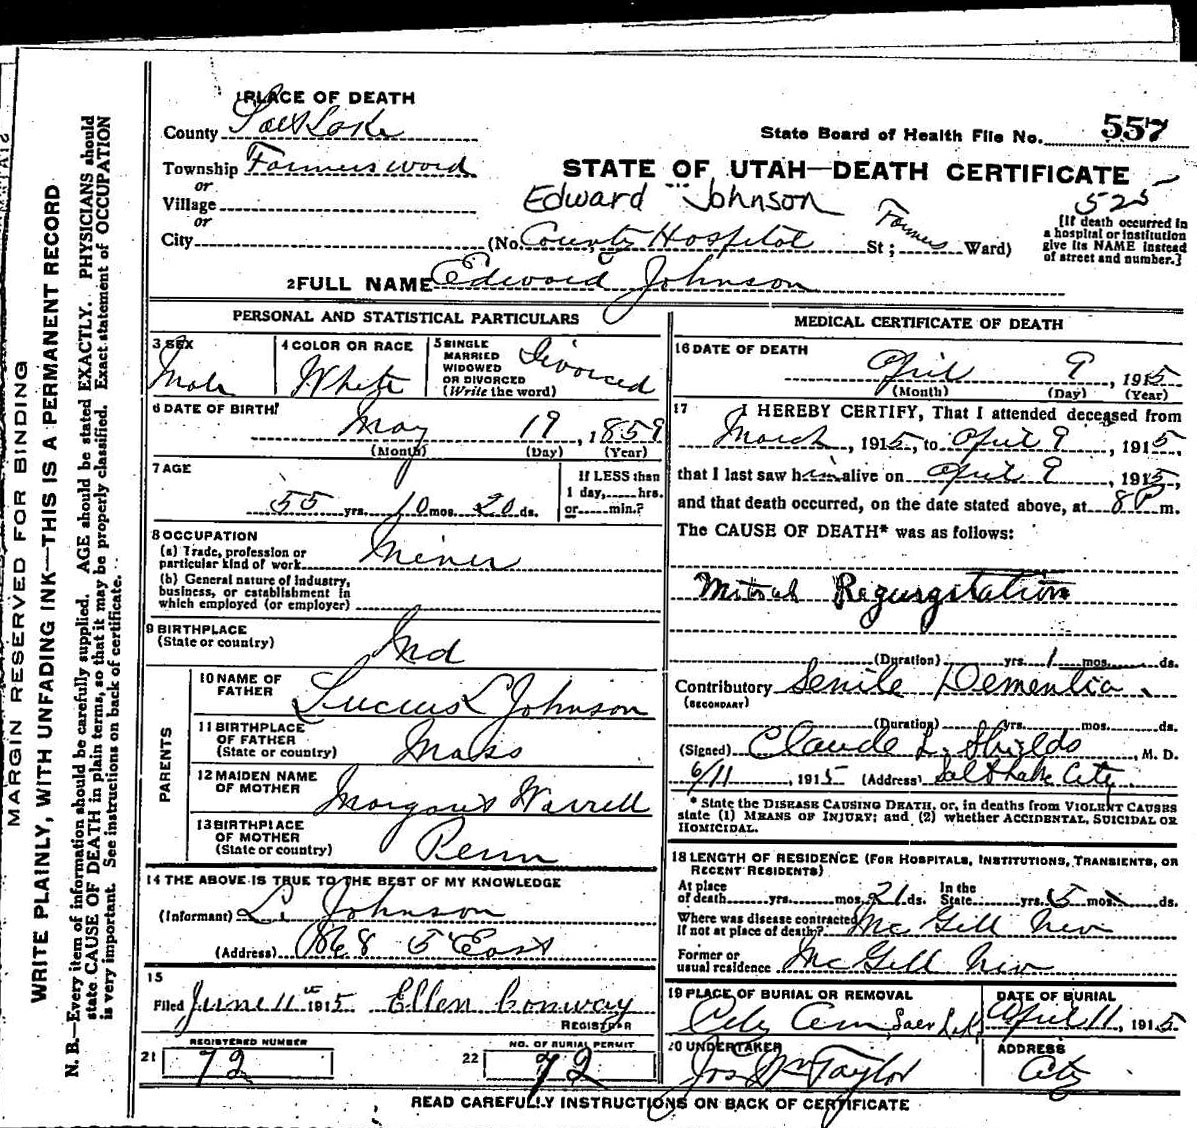 1 PLACE OF DEATH
County Salt Lake
State Board of Health File No. 557
Township Farmers Ward
STATE OF UTAH—DEATH CERTIFICATE
or
Village
Edward Johnson
525
or
City
(No. County Hospital St; Farmers Ward)
[If death occurred in
a hospital or institution
give its NAME instead
of street and number.]
2 FULL NAME Edward Johnson
PERSONAL AND STATISTICAL PARTICULARS
3 SEX
Male
4 COLOR OR RACE
White
5 SINGLE
MARRIED
WIDOWED
OR DIVORCED
(Write the word)
Divorced
6 DATE OF BIRTH
May 19, 1859
(Month) (Day) (Year)
7 AGE
55 yrs. 10 mos. 20 ds.
If LESS than
1 day, hrs.
or min.?
8 OCCUPATION
(a) Trade, profession or
particular kind of work Miner
(b) General nature of Industry,
business, or establishment in
which employed (or employer)
9 BIRTHPLACE
(State or country)
Ind
PARENTS
10 NAME OF
FATHER
Lucius L Johnson
11 BIRTHPLACE
OF FATHER
(State or country)
Mass
12 MAIDEN NAME
OF MOTHER
Margaret Warrell
13 BIRTHPLACE
OF MOTHER
(State or country)
Penn
14 THE ABOVE IS TRUE TO THE BEST OF MY KNOWLEDGE
(Informant) L. Johnson
(Address) 868 5 East
15
Filed June 11th 1915 Ellen Conway
REGISTRAR
21
REGISTERED NUMBER
72
22
NO. OF BURIAL PERMIT
72
MEDICAL CERTIFICATE OF DEATH
16 DATE OF DEATH
April 9, 1915
(Month) (Day) (Year)
17 I HEREBY CERTIFY, That I attended deceased from
March, 1915, to April 9, 1915,
that I last saw him alive on April 9, 1915,
and that death occurred, on the date stated above, at 8 P m.
The CAUSE OF DEATH* was as follows:
Mitral Regurgitation
(Duration) yrs. 1 mos. ds.
Contributory Senile Dementia
(SECONDARY)
(Duration) yrs. mos. ds.
(Signed) Claude L. Shields, M. D.
6/11, 1915 (Address) Salt Lake City
* State the DISEASE CAUSING DEATH, or, in deaths from VIOLENT CAUSES
state (1) MEANS OF INJURY; and (2) whether ACCIDENTAL, SUICIDAL OR
HOMICIDAL.
18 LENGTH OF RESIDENCE (FOR HOSPITALS, INSTITUTIONS, TRANSIENTS, OR
RECENT RESIDENTS)
At place
of death yrs. mos. 21 ds.
In the
State yrs. 5 mos. ds.
Where was disease contracted
if not at place of death? Mc Gill Nev
Former or
usual residence Mc Gill Nev
19 PLACE OF BURIAL OR REMOVAL
City Cem Salt Lake
DATE OF BURIAL
April 11, 1915
20 UNDERTAKER
Jos Wm Taylor
ADDRESS
City
READ CAREFULLY INSTRUCTIONS ON BACK OF CERTIFICATE
MARGIN RESERVED FOR BINDING
WRITE PLAINLY, WITH UNFADING INK—THIS IS A PERMANENT RECORD
N. B.—Every item of information should be carefully supplied. AGE should be stated EXACTLY. PHYSICIANS should
state CAUSE OF DEATH in plain terms, so that it may be properly classified. Exact statement of OCCUPATION
is very important. See instructions on back of certificate.